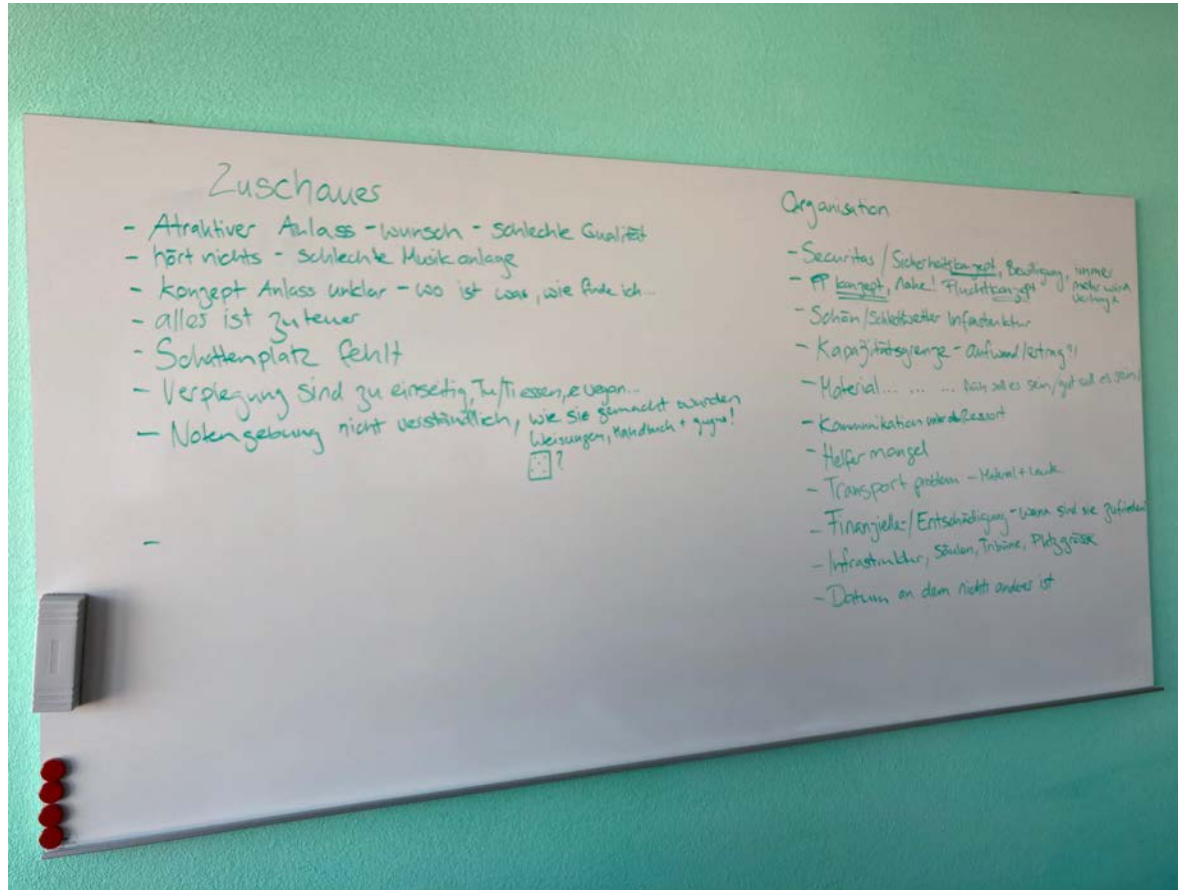 Zuschauer
- Atraktiver Anlass - wunsch - schlechte Qualität
- hört nichts - schlechte Musikanlage
- Konzept Anlass unklar - wo ist was, wie finde ich...
- alles ist zu teuer
- Schattenplatz fehlt
- Verplegung sind zu einseitig, vegan...
- Notengebung nicht verständlich, wie sie gemacht wurden
Weisungen, Handbuch +
?
-
Organisation
- Securitas / Sicherheitskonzept, Bewilligung, immer
mehr wird
verlangt
- PP konzept, Nahe! Fluchtkonzept
- Schön/Schlechtwetter Infrastruktur
- Kapazitätsgrenze - aufwand/ertrag?!
- Material... ... ... soll es sein/gut soll es sein!
- Kommunikation Ressort
- Helfer mangel
- Transport problem - Material + Leute
- Finanzielle-/Entschädigung - wann sind sie zufrieden
- Infrastruktur, Säulen, Tribüne, Platzgrösse
- Datum an dem nichts anderes ist